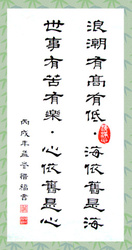 浪潮有高有低，海依舊是海
世事有苦有樂，心依舊是心
丙戌年孟冬